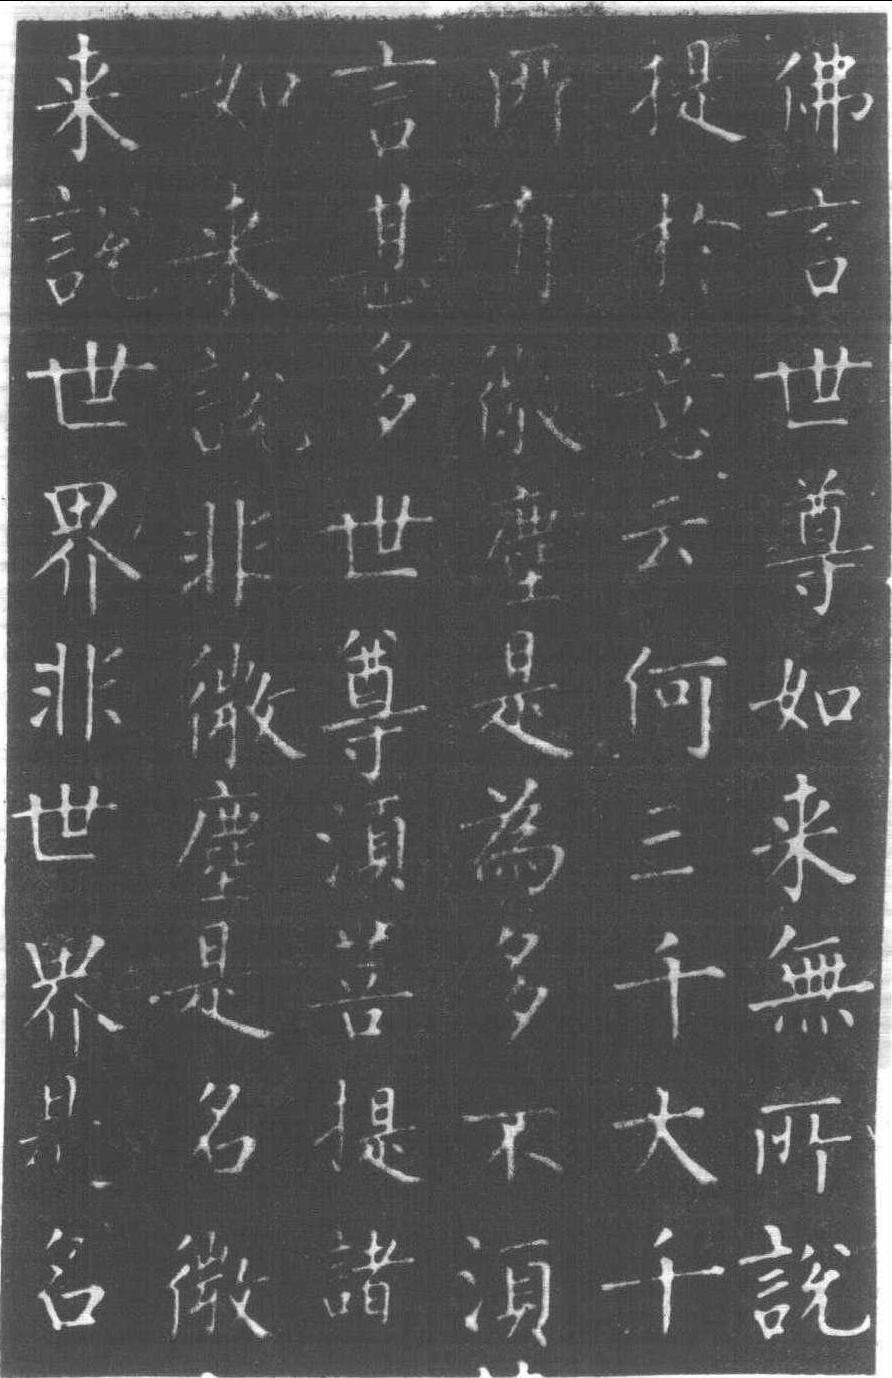 佛言世尊如来無所說
提於意云何三千大千
所有微塵是為多不須
言甚多世尊須菩提諸
如来說非微塵是名微
来說世界非世界是名